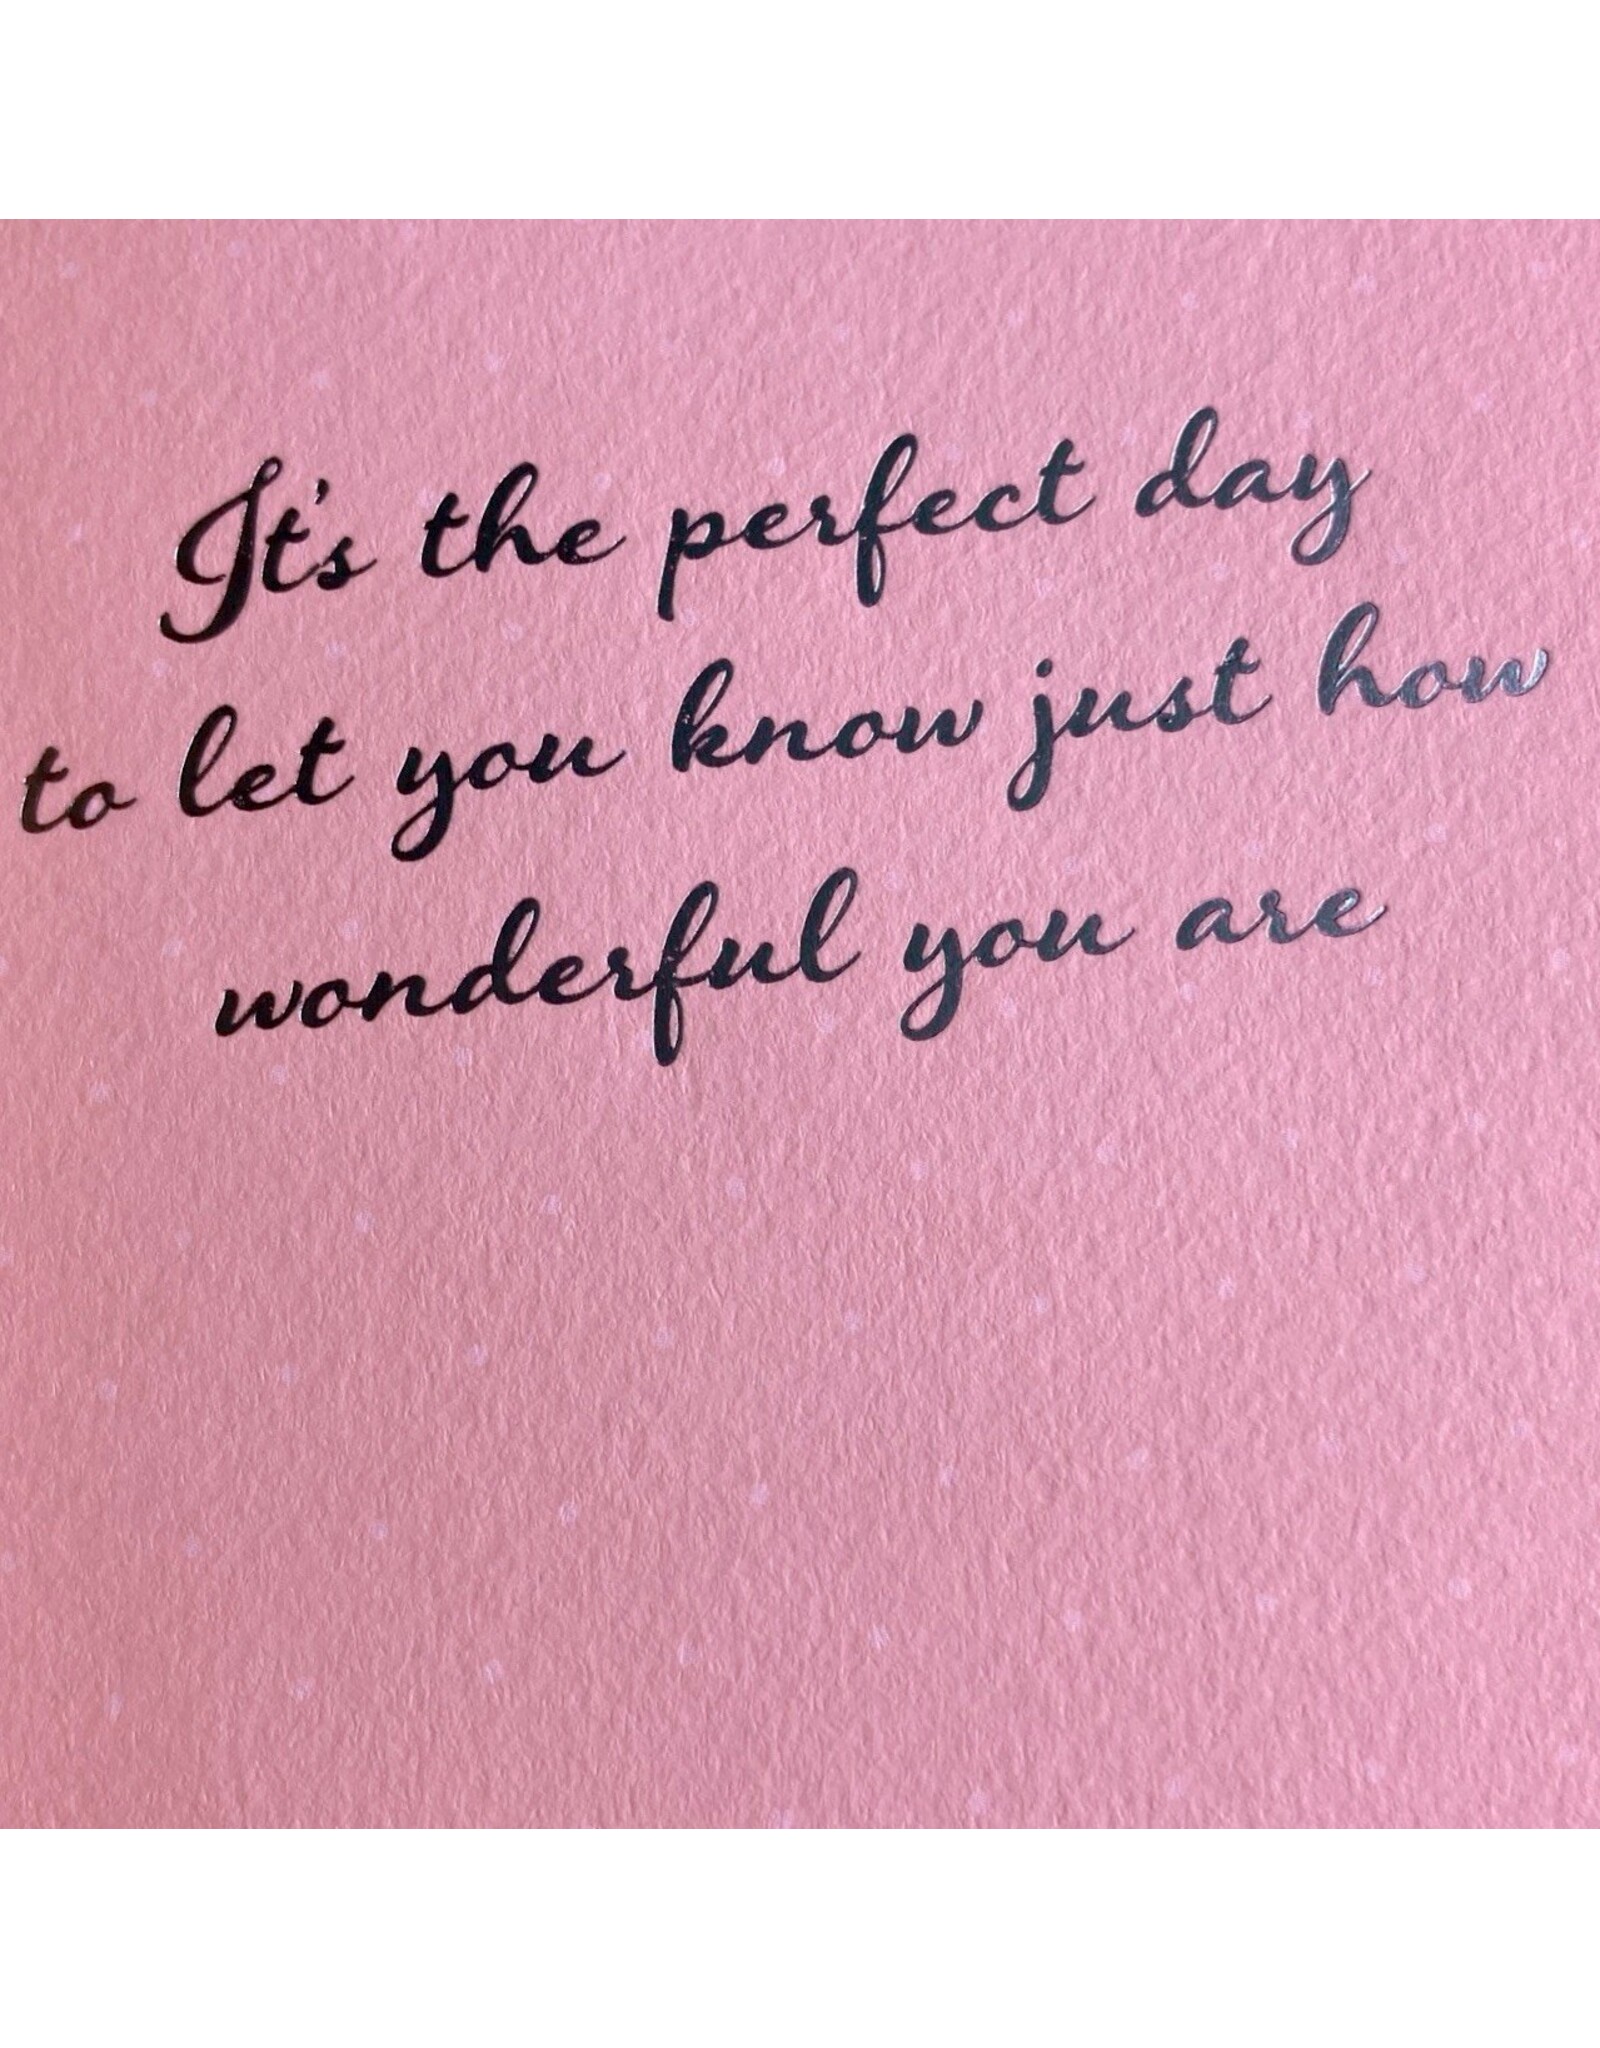 It's the perfect day
to let you know just how
wonderful you are